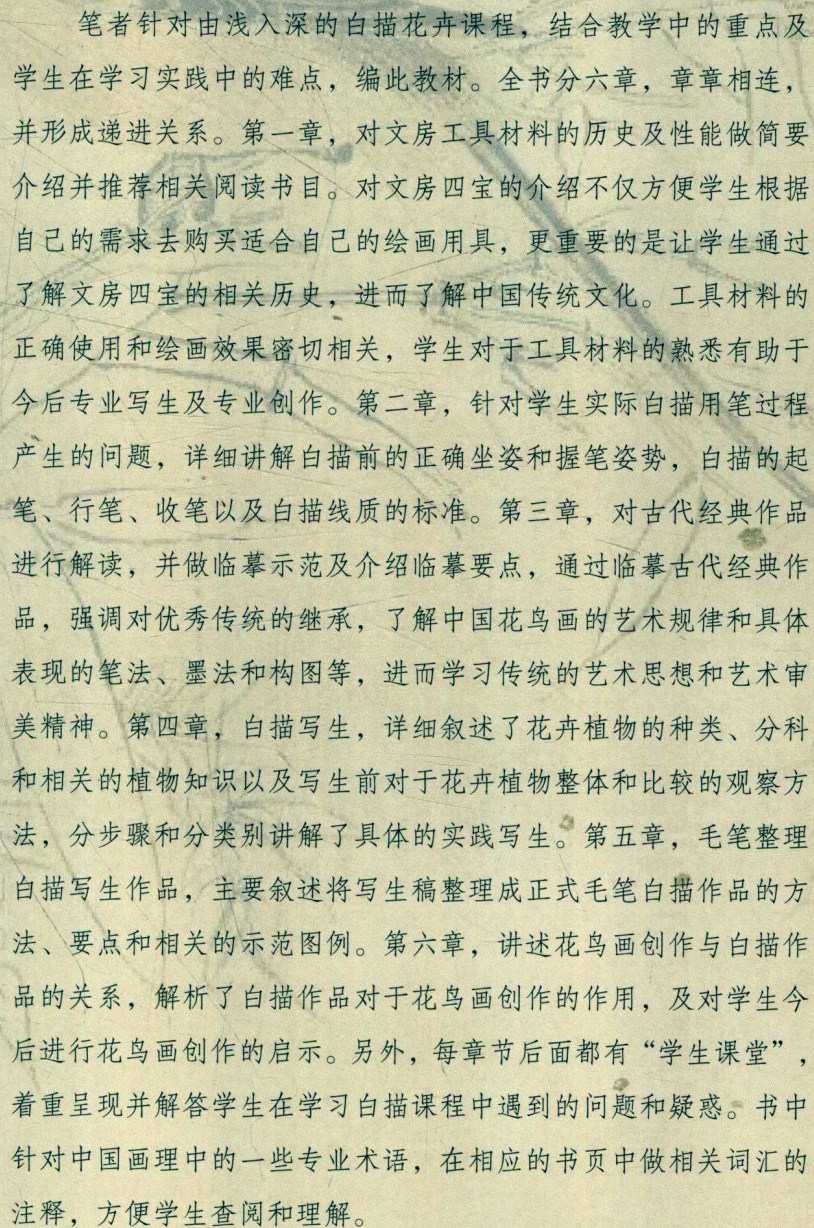 笔者针对由浅入深的白描花卉课程，结合教学中的重点及
学生在学习实践中的难点，编此教材。全书分六章，章章相连，
并形成递进关系。第一章，对文房工具材料的历史及性能做简要
介绍并推荐相关阅读书目。对文房四宝的介绍不仅方便学生根据
自己的需求去购买适合自己的绘画用具，更重要的是让学生通过
了解文房四宝的相关历史，进而了解中国传统文化。工具材料的
正确使用和绘画效果密切相关，学生对于工具材料的熟悉有助于
今后专业写生及专业创作。第二章，针对学生实际白描用笔过程
产生的问题，详细讲解白描前的正确坐姿和握笔姿势，白描的起
笔、行笔、收笔以及白描线质的标准。第三章，对古代经典作品
进行解读，并做临摹示范及介绍临摹要点，通过临摹古代经典作
品，强调对优秀传统的继承，了解中国花鸟画的艺术规律和具体
表现的笔法、墨法和构图等，进而学习传统的艺术思想和艺术审
美精神。第四章，白描写生，详细叙述了花卉植物的种类、分科
和相关的植物知识以及写生前对于花卉植物整体和比较的观察方
法，分步骤和分类别讲解了具体的实践写生。第五章，毛笔整理
白描写生作品，主要叙述将写生稿整理成正式毛笔白描作品的方
法、要点和相关的示范图例。第六章，讲述花鸟画创作与白描作
品的关系，解析了白描作品对于花鸟画创作的作用，及对学生今
后进行花鸟画创作的启示。另外，每章节后面都有“学生课堂”，
着重呈现并解答学生在学习白描课程中遇到的问题和疑惑。书中
针对中国画理中的一些专业术语，在相应的书页中做相关词汇的
注释，方便学生查阅和理解。